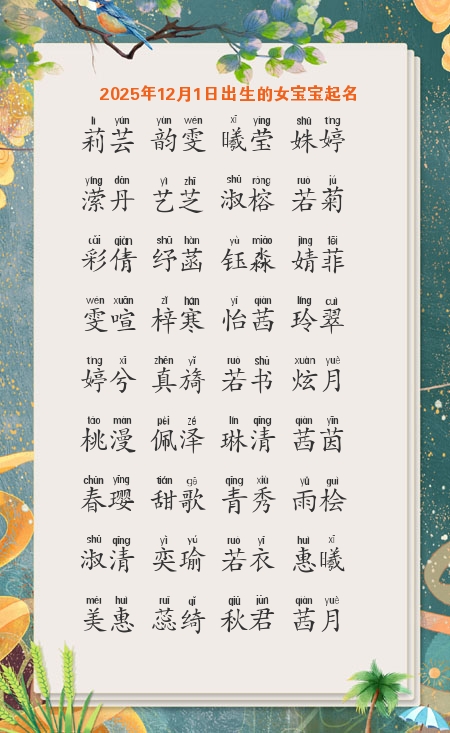 2025年12月1日出生的女宝宝起名
lì yún yùn wén xī yíng shū tíng
莉芸 韵雯 曦莹 姝婷
yíng dān yì zhī shū róng ruò jú
潆丹 艺芝 淑榕 若菊
cǎi qiàn shū hàn yù miǎo jìng fēi
彩倩 纾菡 钰淼 婧菲
wén xuān zǐ hán yí qiàn líng cuì
雯喧 梓寒 怡茜 玲翠
tíng xī zhēn yǐ ruò shū xuàn yuè
婷兮 真旖 若书 炫月
táo màn pèi zé lín qīng qiàn yīn
桃漫 佩泽 琳清 茜茵
chūn yīng tián gē qīng xiù yǔ guì
春璎 甜歌 青秀 雨桧
shū qīng yì yú ruò yī huì xī
淑清 奕瑜 若衣 惠曦
měi huì ruǐ qǐ qiū jūn qiàn yuè
美惠 蕊绮 秋君 茜月